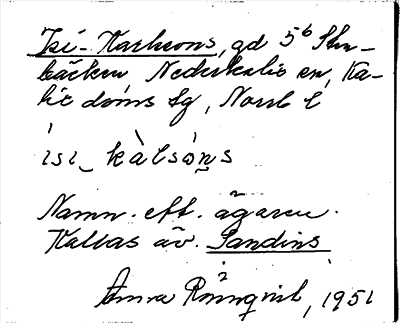 Isi-Karlsons, gd 5⁶ Sten-
bäcken, Nederkalix sn, Ka-
lix doms lg, Norrb l
ısı_ kàlsòn̯s
Namn. eft. ägaren.
Kallas äv. Sandins
Anna Rönnqvist, 1951